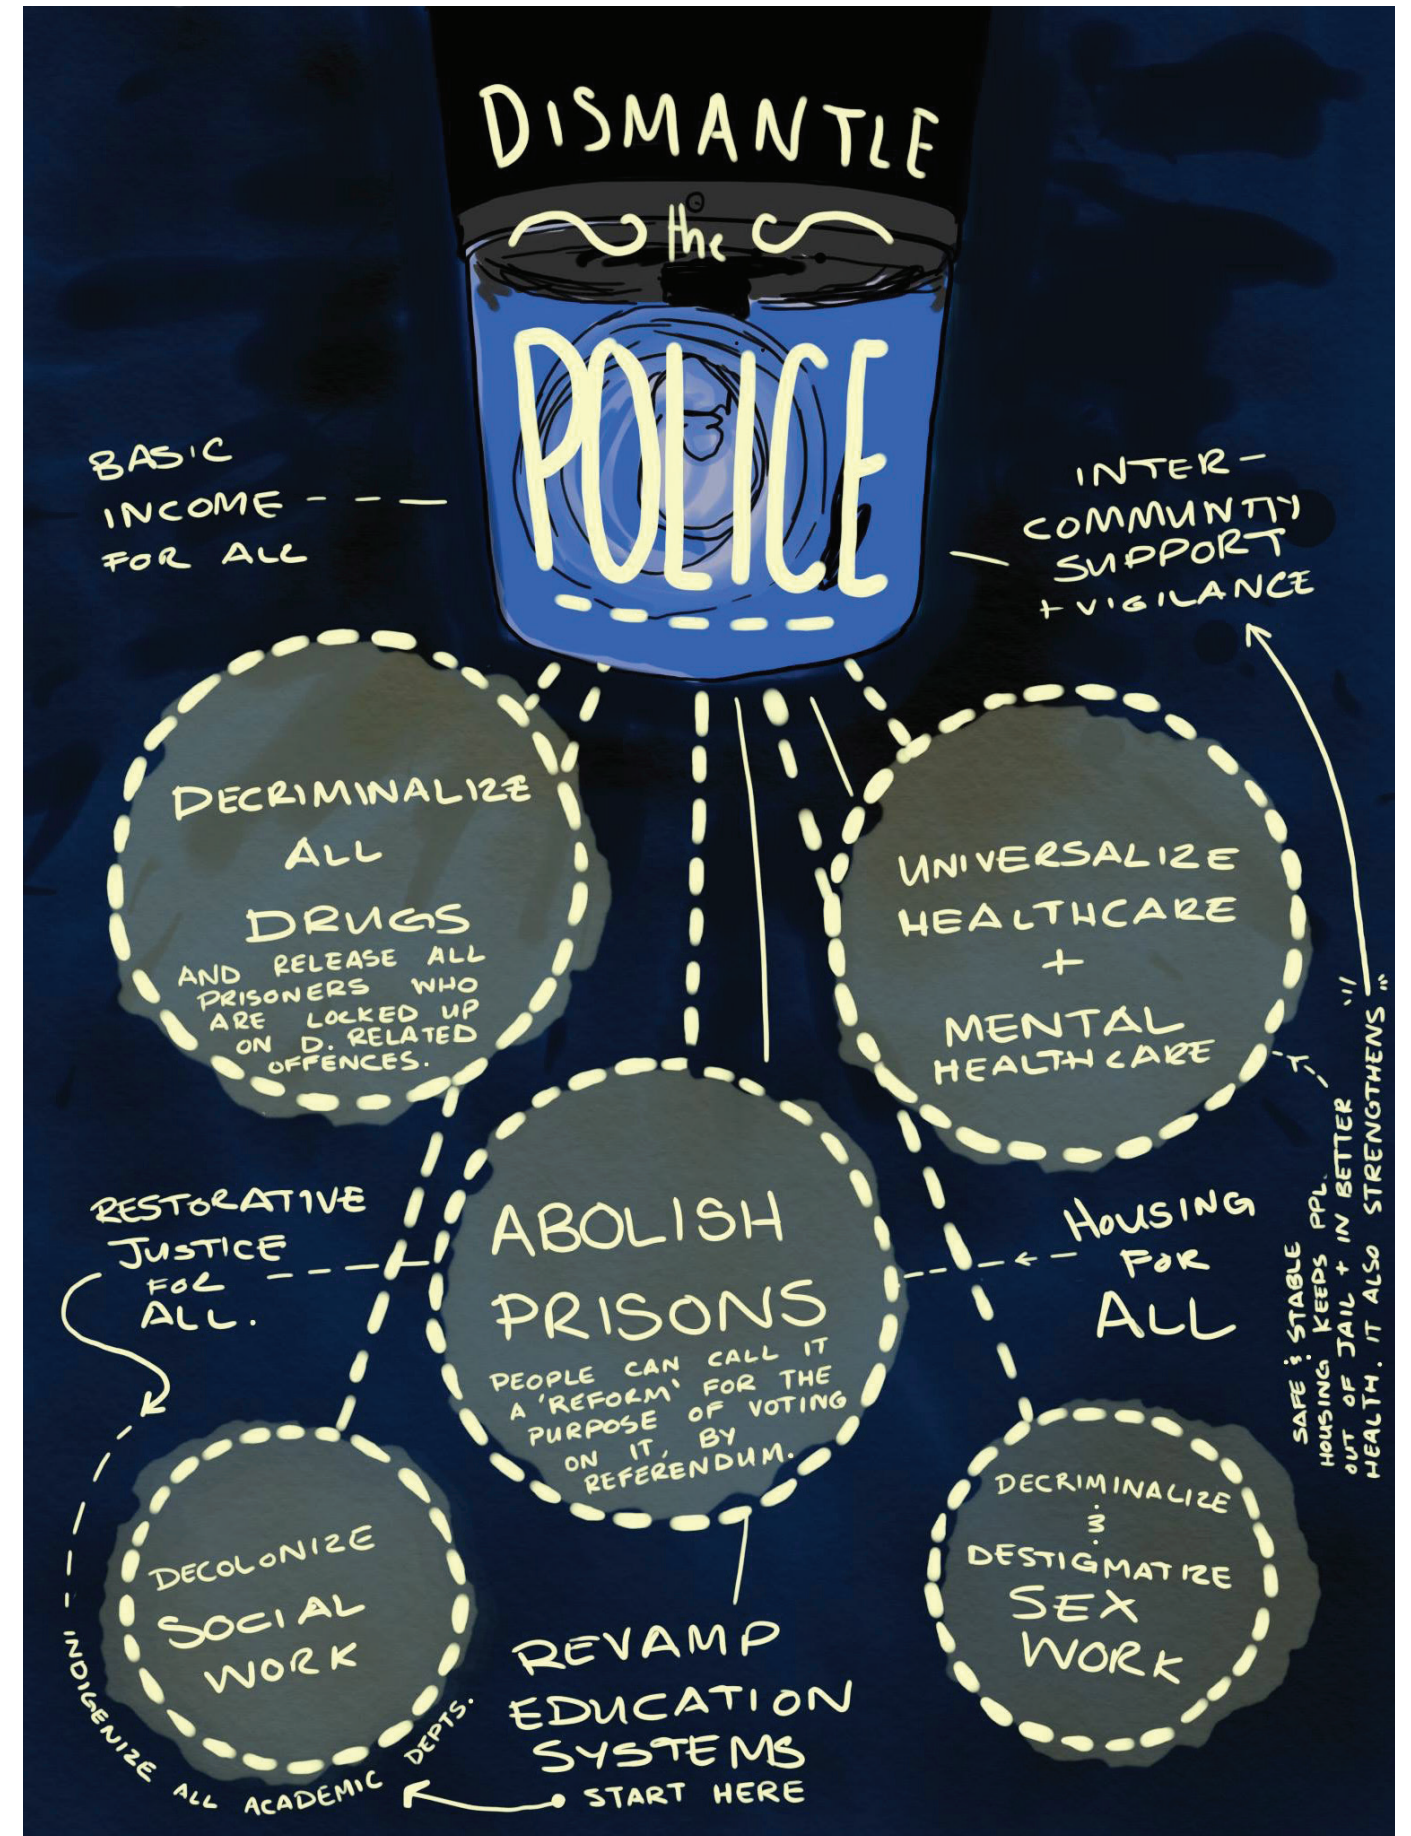 DISMANTLE
the
POLICE
BASIC
INCOME
FOR ALL
INTER-
COMMUNITY
SUPPORT
+ VIGILANCE
DECRIMINALIZE
ALL
DRUGS
AND RELEASE ALL
PRISONERS WHO
ARE LOCKED UP
ON D. RELATED
OFFENCES.
UNIVERSALIZE
HEALTHCARE
+
MENTAL
HEALTHCARE
RESTORATIVE
JUSTICE
FOR
ALL.
ABOLISH
PRISONS
PEOPLE CAN CALL IT
A 'REFORM' FOR THE
PURPOSE OF VOTING
ON IT, BY
REFERENDUM.
HOUSING
FOR
ALL
SAFE & STABLE
HOUSING KEEPS PPL.
OUT OF JAIL + IN BETTER
HEALTH. IT ALSO STRENGTHENS
DECOLONIZE
SOCIAL
WORK
INDIGENIZE ALL ACADEMIC DEPTS.
REVAMP
EDUCATION
SYSTEMS
START HERE
DECRIMINALIZE
&
DESTIGMATIZE
SEX
WORK